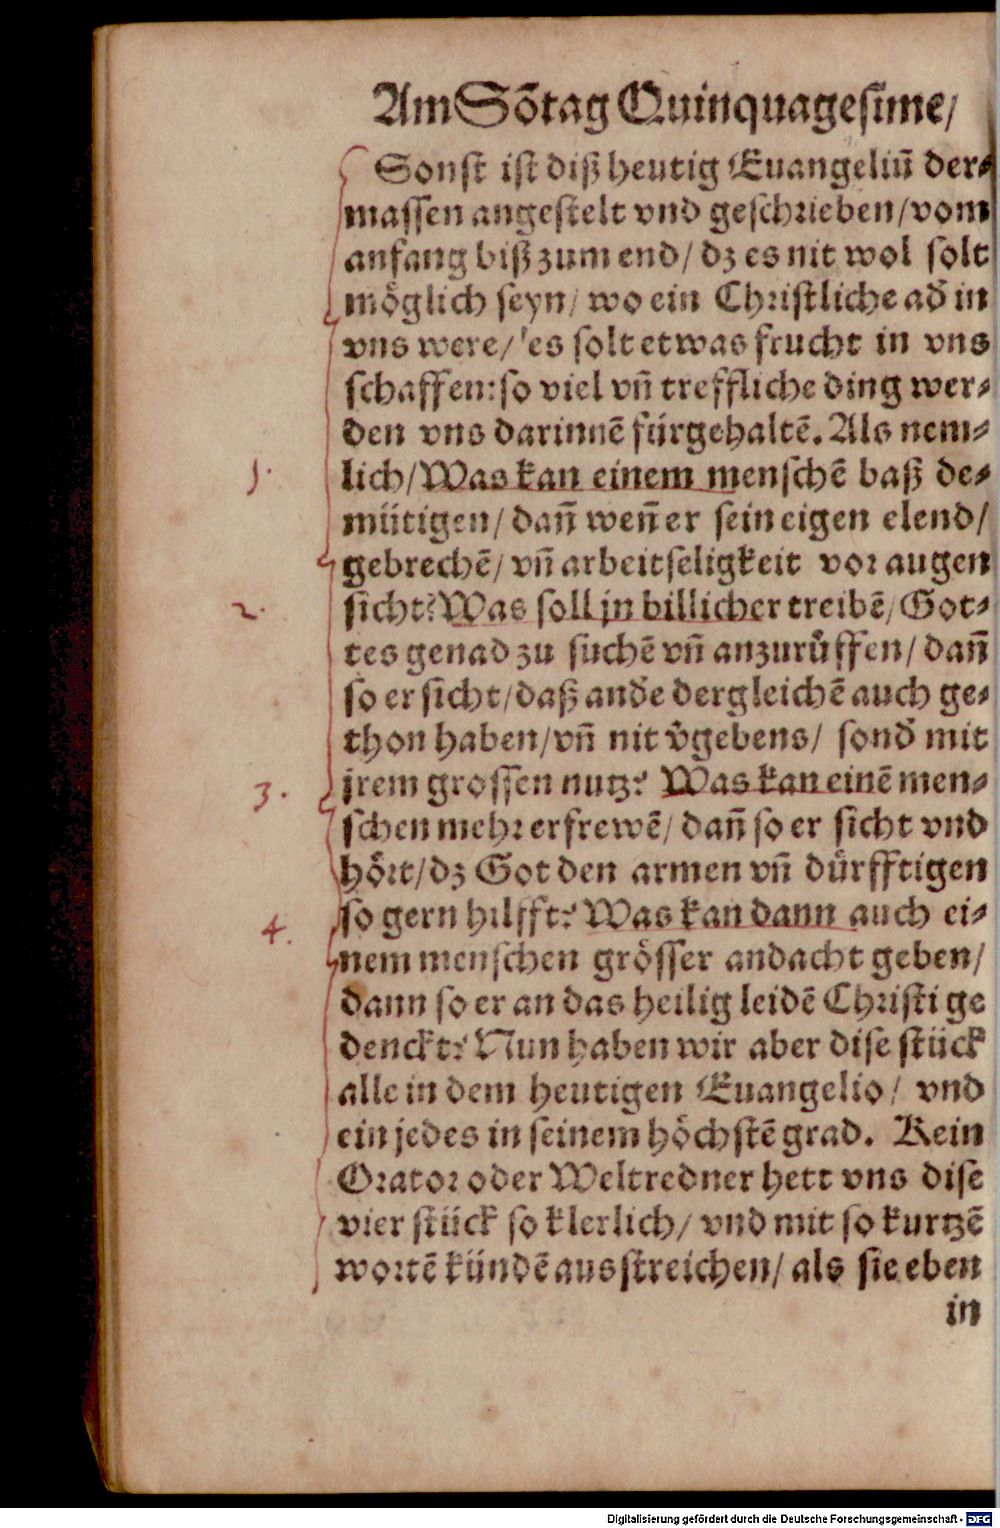 Am Sõtag Quinquagesime/
Sonst ist diß heutig Euangeliũ der⸗
massen angestelt vnd geschrieben/vom
anfang biß zum end/ dz es nit wol solt
möglich seyn/ wo ein Christliche ad̃ in
vns were/ es solt etwas frucht in vns
schaffen: so viel vñ treffliche ding wer⸗
den vns darinnẽ fürgehaltẽ. Als nem⸗
1. lich/ Was kan einem menschẽ baß de⸗
mütigen/ dañ weñ er sein eigen elend/
gebrechẽ/ vñ arbeitseligkeit vor augen
2. sicht? Was soll jn billicher treibẽ/ Got⸗
tes genad zu suchẽ vñ anzurůffen/ dañ
so er sicht/ daß and̃e dergleichẽ auch ge⸗
thon haben/ vñ nit v̈gebens/ sond̃ mit
3. jrem grossen nutz? Was kan einẽ men⸗
schen mehr erfrewẽ/ dañ so er sicht vnd
hört/ dz Got den armen vñ dürfftigen
4. so gern hilfft? Was kan dann auch ei⸗
nem menschen grösser andacht geben/
dann so er an das heilig leidẽ Christi ge
denckt? Nun haben wir aber dise stück
alle in dem heutigen Euangelio/ vnd
ein jedes in seinem höchstẽ grad. Kein
Orator oder Weltredner hett vns dise
vier stück so klerlich/ vnd mit so kurtzẽ
wortẽ kündẽ ausstreichen/ als sie eben
in
Digitalisierung gefördert durch die Deutsche Forschungsgemeinschaft - DFG